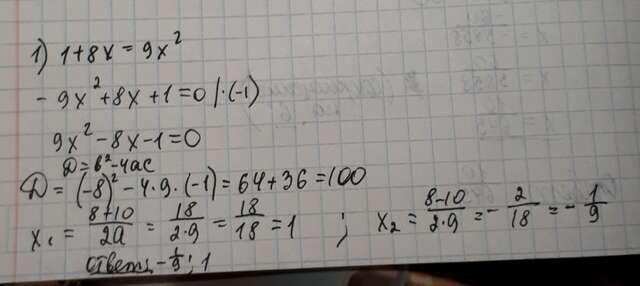 1) 1+8x=9x²
-9x²+8x+1=0 |·(-1)
9x²-8x-1=0
D=b²-4ac
D=(-8)²-4·9·(-1)=64+36=100
x₁ = (8+10)/2a = 18/2·9 = 18/18 = 1 ; x₂ = (8-10)/2·9 = -2/18 = -1/9
ответ: -1/9; 1